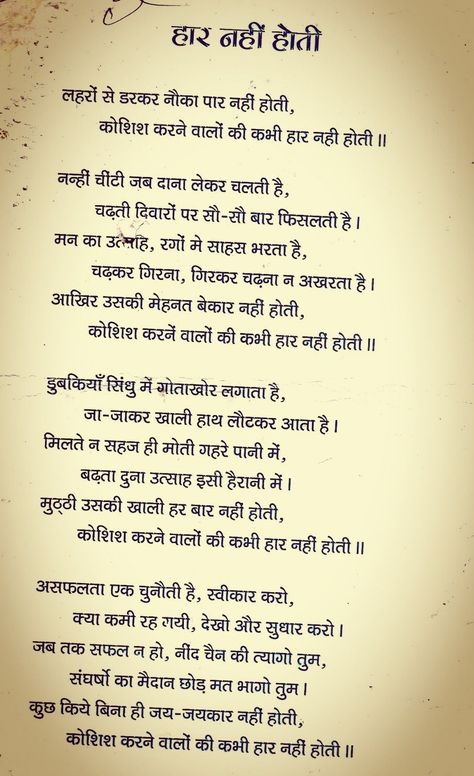 हार नहीं होती
लहरों से डरकर नौका पार नहीं होती,
कोशिश करने वालों की कभी हार नही होती ॥
नन्हीं चींटी जब दाना लेकर चलती है,
चढ़ती दिवारों पर सौ-सौ बार फिसलती है ।
मन का उत्साह, रगों मे साहस भरता है,
चढ़कर गिरना, गिरकर चढ़ना न अखरता है ।
आखिर उसकी मेहनत बेकार नहीं होती,
कोशिश करनें वालों की कभी हार नहीं होती ॥
डुबकियाँ सिंधु में गोताखोर लगाता है,
जा-जाकर खाली हाथ लौटकर आता है ।
मिलते न सहज ही मोती गहरे पानी में,
बढ़ता दुना उत्साह इसी हैरानी में ।
मुठ्ठी उसकी खाली हर बार नहीं होती,
कोशिश करने वालों की कभी हार नहीं होती ॥
असफलता एक चुनौती है, स्वीकार करो,
क्या कमी रह गयी, देखो और सुधार करो ।
जब तक सफल न हो, नींद चैन की त्यागो तुम,
संघर्षो का मैदान छोड़ मत भागो तुम ।
कुछ किये बिना ही जय-जयकार नहीं होती,
कोशिश करने वालों की कभी हार नहीं होती ॥